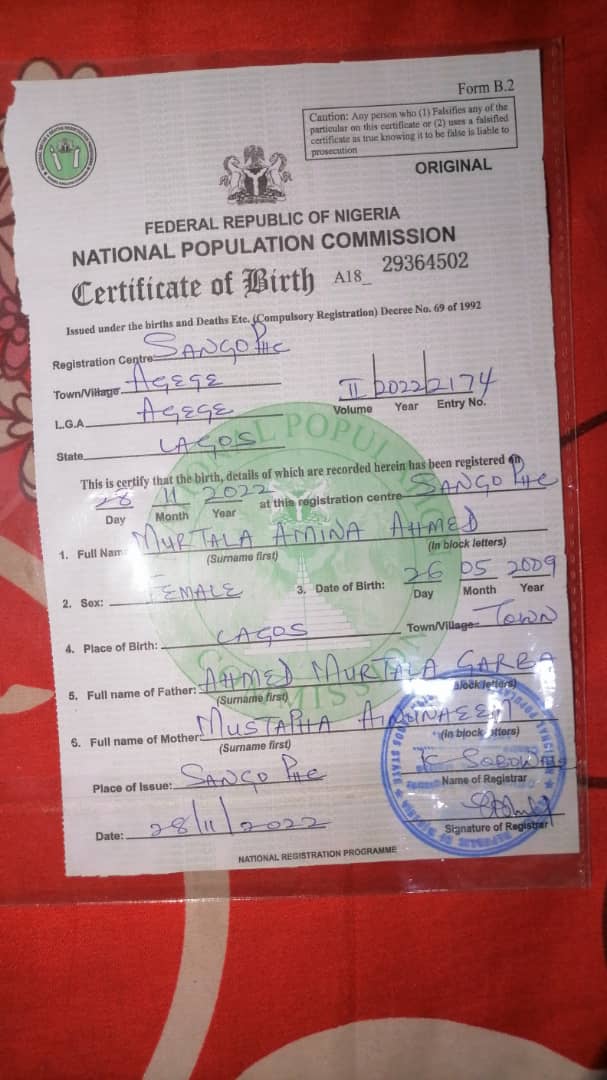 Form B.2
Caution: Any person who (1) Falsifies any of the
particular on this certificate or (2) uses a falsified
certificate as true knowing it to be false is liable to
prosecution
ORIGINAL
FEDERAL REPUBLIC OF NIGERIA
NATIONAL POPULATION COMMISSION
Certificate of Birth A18_ 29364502
Issued under the births and Deaths Etc. (Compulsory Registration) Decree No. 69 of 1992
Registration Centre SANGO PHC
Town/Village AGEGE
L.G.A AGEGE
II 2022 2174
Volume Year Entry No.
State LAGOS
This is certify that the birth, details of which are recorded herein has been registered on
28 11 2022 at this registration centre SANGO PHC
Day Month Year
1. Full Name MURTALA AMINA AHMED
(Surname first) (In block letters)
2. Sex: FEMALE 3. Date of Birth: 26 05 2009
Day Month Year
4. Place of Birth: LAGOS Town/Village TOWN
5. Full name of Father: AHMED MURTALA GARBA
(Surname first) block letters)
6. Full name of Mother MUSTAPHA
(Surname first) (in block letters)
Place of Issue: SANGO PHC
Name of Registrar
Date: 28/11/2022
Signature of Registrar
NATIONAL REGISTRATION PROGRAMME